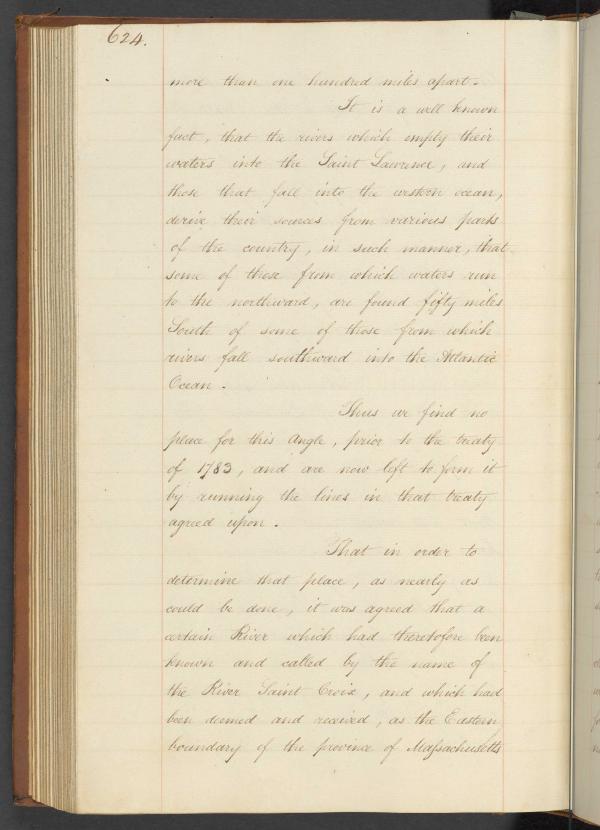 624.
more than one hundred miles apart.
It is a well known
fact, that the rivers which empty their
waters into the Saint Lawrence, and
those that fall into the western ocean,
derive their sources from various parts
of the country, in such manner, that
some of those from which waters run
to the northward, are found fifty miles
South of some of those from which
rivers fall southward into the Atlantic
Ocean.
Thus we find no
place for this Angle, prior to the treaty
of 1783, and are now left to form it
by running the lines in that treaty
agreed upon.
That in order to
determine that place, as nearly as
could be done, it was agreed that a
certain River which had theretofore been
known and called by the name of
the River Saint Croix, and which had
been deemed and received, as the Eastern
boundary of the province of Massachusetts